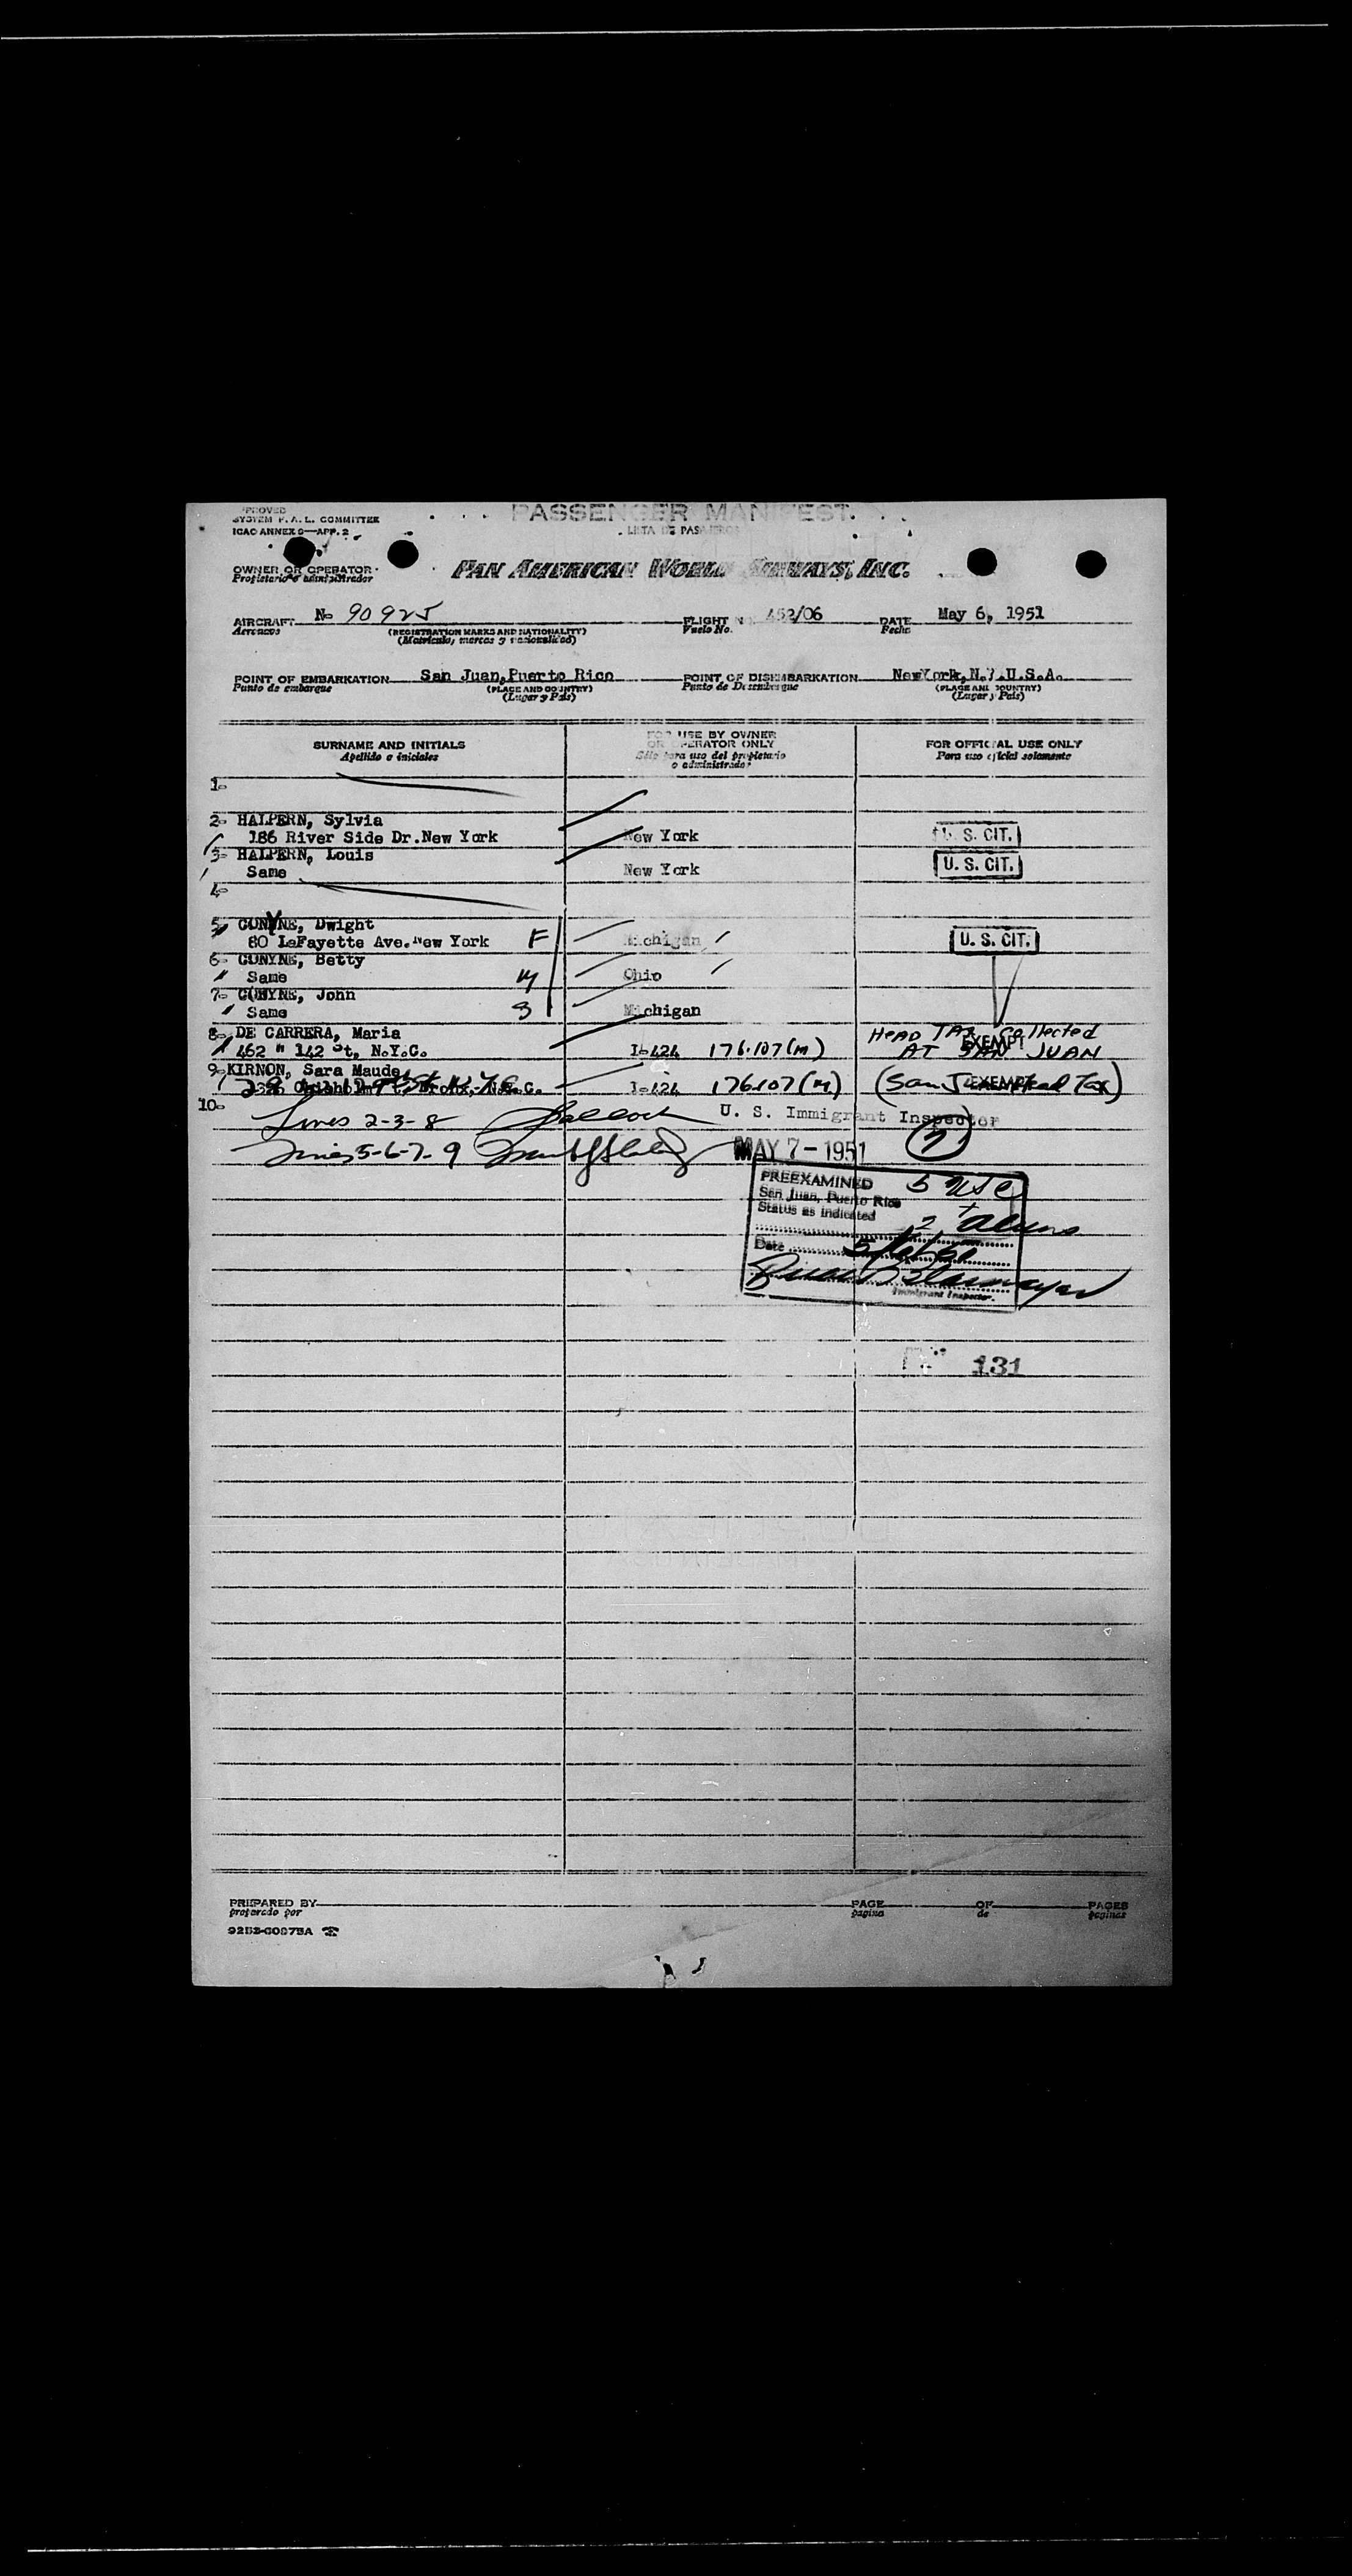 SYSTEM F. A. L. COMMITTEE
ICAO ANNEX 9—APP. 2
PASSENGER MANIFEST
LISTA DE PASAJEROS
OWNER OR OPERATOR
Propietario o administrador
PAN AMERICAN WORLD AIRWAYS, INC.
AIRCRAFT No 90925 FLIGHT No. 452/06 DATE May 6, 1951
Aeronave (REGISTRATION MARKS AND NATIONALITY) Vuelo No. Fecha
(Matricula, marcas y nacionalidad)
POINT OF EMBARKATION San Juan, Puerto Rico POINT OF DISEMBARKATION NewYork, N.Y.U.S.A.
Punto de embarque (PLACE AND COUNTRY) Punto de Desembarque (PLACE AND COUNTRY)
(Lugar y Pais) (Lugar y Pais)
SURNAME AND INITIALS FOR USE BY OWNER OR OPERATOR ONLY FOR OFFICIAL USE ONLY
Apellido e iniciales Sólo para uso del propietario o administrador Para uso oficial solamente
1-
2- HALPERN, Sylvia
186 River Side Dr.New York New York U. S. CIT.
3- HALPERN, Louis
Same New York U. S. CIT.
4-
5- CUNYNE, Dwight
80 LaFayette Ave.New York F Michigan U. S. CIT.
6- CUNYNE, Betty
Same M Ohio
7- CUNYNE, John
Same S Michigan
8- DE CARRERA, Maria HEAD TAX Collected
462 W 142 St, N.Y.C. I-424 176.107(M) EXEMPT AT SAN JUAN
9- KIRNON, Sara Maude
Bronx, N.Y.C. I-424 176.107(M) EXEMPT (San J Head Tax)
10-
Lines 2-3-8 U. S. Immigrant Inspector
Lines 5-6-7-9 MAY 7-1951 7
PREEXAMINED 5 USC
San Juan, Puerto Rico
Status as indicated 2 Aliens
Date 5/6/51
Immigrant Inspector.
131
PREPARED BY PAGE OF PAGES
preparado por pagina de paginas